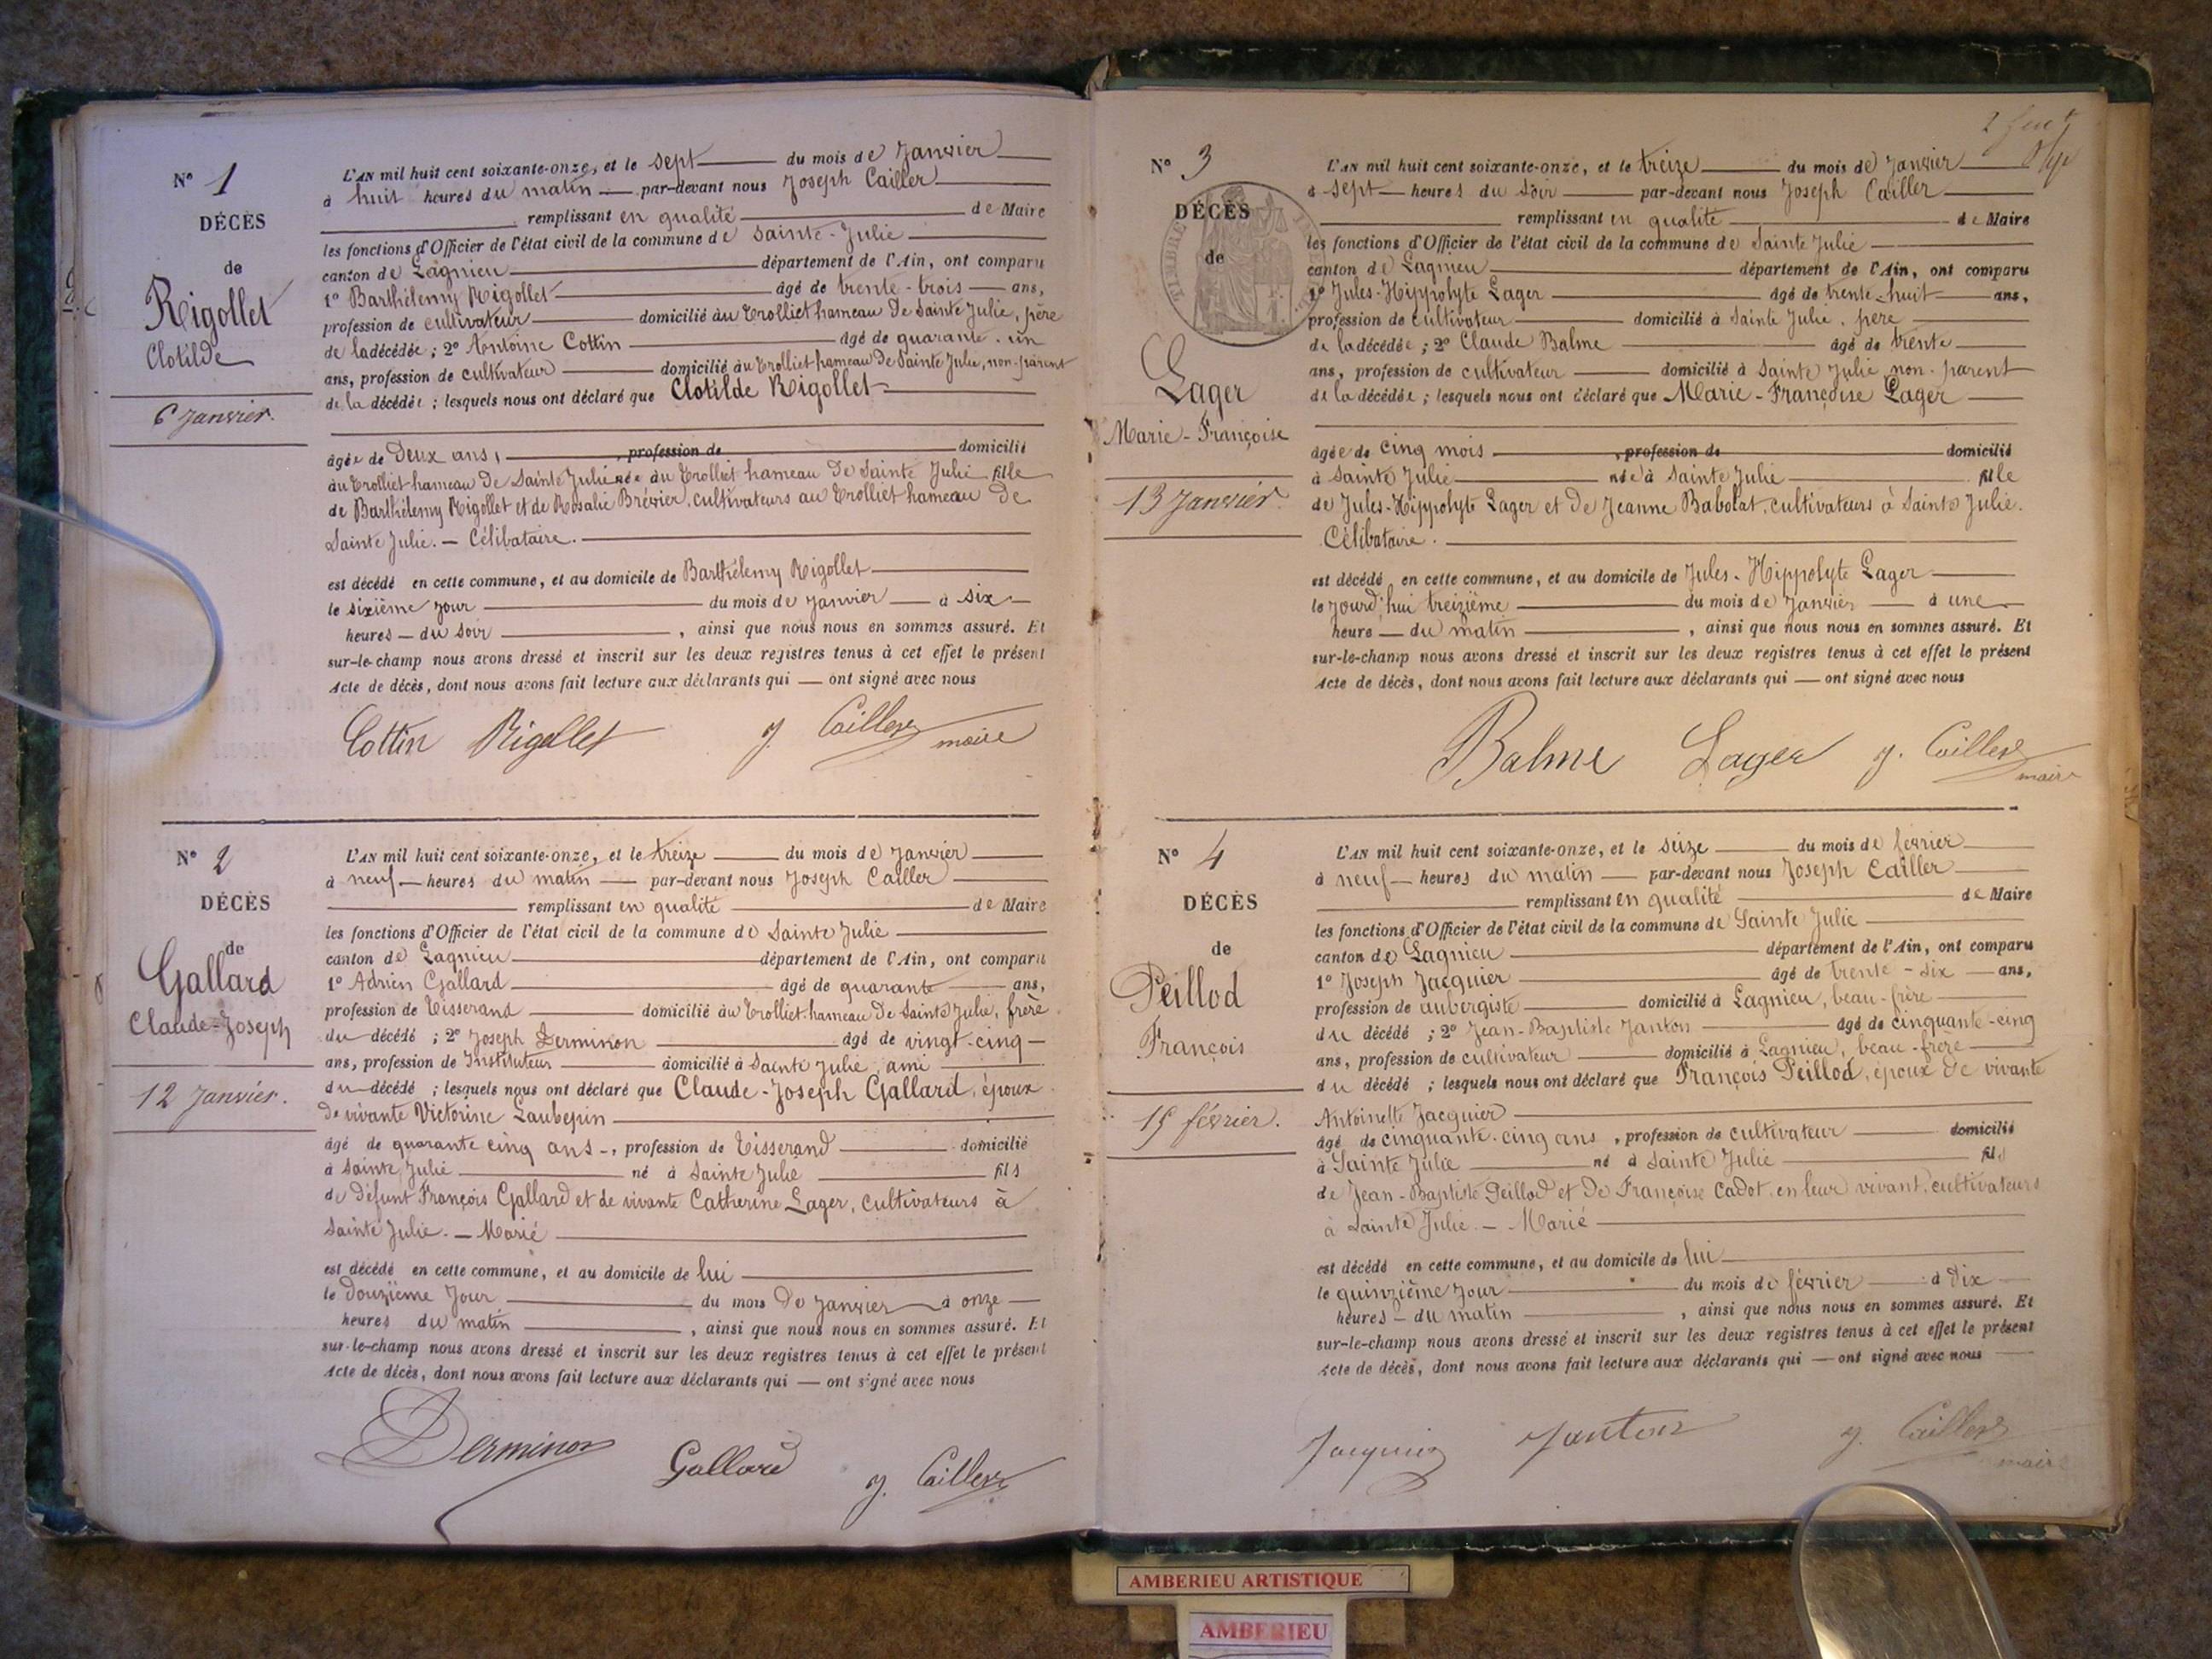 N° 1
DÉCÈS
de
Rigollet
Clotilde
6 Janvier.
L'AN mil huit cent soixante-onze, et le sept du mois de Janvier
à huit heures du matin par-devant nous Joseph Cailler
remplissant en qualité de Maire
les fonctions d'Officier de l'état civil de la commune de Sainte-Julie
canton de Lagnieu département de l'Ain, ont comparu
1° Barthélemy Rigollet âgé de trente-trois ans,
profession de cultivateur domicilié au Trolliet hameau de Sainte Julie, père
de la décédée ; 2° Antoine Cottin âgé de quarante-un
ans, profession de cultivateur domicilié au Trolliet hameau de Sainte Julie, non-parent
de la décédée ; lesquels nous ont déclaré que Clotilde Rigollet
âgée de deux ans, , profession de domicilié
au Trolliet hameau de Sainte Julie née au Trolliet hameau de Sainte Julie fille
de Barthélemy Rigollet et de Rosalie Brévier, cultivateurs au Trolliet hameau de
Sainte Julie. — Célibataire.
est décédé en cette commune, et au domicile de Barthélemy Rigollet
le sixième jour du mois de Janvier à six
heures du soir , ainsi que nous nous en sommes assuré. Et
sur-le-champ nous avons dressé et inscrit sur les deux registres tenus à cet effet le présent
Acte de décès, dont nous avons fait lecture aux déclarants qui ont signé avec nous
Cottin Rigollet J. Cailler maire
N° 2
DÉCÈS
de
Gallard
Claude-Joseph
12 Janvier.
L'AN mil huit cent soixante-onze, et le treize du mois de Janvier
à neuf heures du matin par-devant nous Joseph Cailler
remplissant en qualité de Maire
les fonctions d'Officier de l'état civil de la commune de Sainte Julie
canton de Lagnieu département de l'Ain, ont comparu
1° Adrien Gallard âgé de quarante ans,
profession de Tisserand domicilié au Trolliet-hameau de Sainte Julie, frère
du décédé ; 2° Joseph Derminon âgé de vingt-cinq
ans, profession de Instituteur domicilié à Sainte Julie, ami
du décédé ; lesquels nous ont déclaré que Claude-Joseph Gallard, époux
de vivante Victorine Laubepin
âgé de quarante cinq ans , profession de Tisserand domicilié
à Sainte Julie né à Sainte Julie fils
de défunt François Gallard et de vivante Catherine Lager, cultivateurs à
Sainte Julie. — Marié
est décédé en cette commune, et au domicile de lui
le douzième jour du mois de Janvier à onze
heures du matin , ainsi que nous nous en sommes assuré. Et
sur-le-champ nous avons dressé et inscrit sur les deux registres tenus à cet effet le présent
Acte de décès, dont nous avons fait lecture aux déclarants qui ont signé avec nous
Derminon Gallard J. Cailler
N° 3
DÉCÈS
de
Lager
Marie-Françoise
13 Janvier.
L'AN mil huit cent soixante-onze, et le treize du mois de Janvier
à sept heures du soir par-devant nous Joseph Cailler
remplissant en qualité de Maire
les fonctions d'Officier de l'état civil de la commune de Sainte Julie
canton de Lagnieu département de l'Ain, ont comparu
1° Jules-Hippolyte Lager âgé de trente-huit ans,
profession de cultivateur domicilié à Sainte Julie, père
de la décédée ; 2° Claude Balme âgé de trente
ans, profession de cultivateur domicilié à Sainte Julie non-parent
de la décédée ; lesquels nous ont déclaré que Marie-Françoise Lager
âgée de cinq mois , profession de domicilié
à Sainte Julie née à Sainte Julie fille
de Jules-Hippolyte Lager et de Jeanne Babolat, cultivateurs à Sainte Julie.
Célibataire.
est décédé en cette commune, et au domicile de Jules-Hippolyte Lager
le jourd'hui treizième du mois de Janvier à une
heure du matin , ainsi que nous nous en sommes assuré. Et
sur-le-champ nous avons dressé et inscrit sur les deux registres tenus à cet effet le présent
Acte de décès, dont nous avons fait lecture aux déclarants qui ont signé avec nous
Balme Lager J. Cailler maire
N° 4
DÉCÈS
de
Peillod
François
15 février.
L'AN mil huit cent soixante-onze, et le seize du mois de février
à neuf heures du matin par-devant nous Joseph Cailler
remplissant en qualité de Maire
les fonctions d'Officier de l'état civil de la commune de Sainte Julie
canton de Lagnieu département de l'Ain, ont comparu
1° Joseph Jacquier âgé de trente-six ans,
profession de aubergiste domicilié à Lagnieu, beau-frère
du décédé ; 2° Jean-Baptiste Janton âgé de cinquante-cinq
ans, profession de cultivateur domicilié à Lagnieu, beau-frère
du décédé ; lesquels nous ont déclaré que François Peillod, époux de vivante
Antoinette Jacquier
âgé de cinquante-cinq ans , profession de cultivateur domicilié
à Sainte Julie né à Sainte Julie fils
de Jean-Baptiste Peillod et de Françoise Cadot, en leur vivant, cultivateurs
à Sainte Julie. — Marié
est décédé en cette commune, et au domicile de lui
le quinzième jour du mois de février à dix
heures du matin , ainsi que nous nous en sommes assuré. Et
sur-le-champ nous avons dressé et inscrit sur les deux registres tenus à cet effet le présent
Acte de décès, dont nous avons fait lecture aux déclarants qui ont signé avec nous
Jacquier Janton J. Cailler maire
AMBERIEU ARTISTIQUE
AMBERIEU